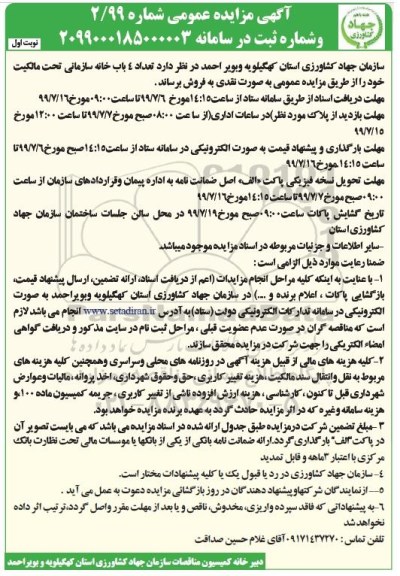 آگهی مزایده عمومی شماره ۲/۹۹
وشماره ثبت در سامانه ۲۰۹۹۰۰۰۱۸۵۰۰۰۰۰۳
نوبت اول
جهاد
کشاورزی
سازمان جهاد کشاورزی استان کهگیلویه وبویر احمد در نظر دارد تعداد ۴ باب خانه سازمانی تحت مالکیت
خود را از طریق مزایده عمومی به صورت نقدی به فروش برساند.
مهلت دریافت اسناد از طریق سامانه ستاد از ساعت۱۴:۱۵مورخ ۹۹/۷/۶ تا ساعت۰۹:۰۰مورخ۹۹/۷/۱۶
مهلت بازدید از پلاک مورد نظر)در ساعات اداری(از ساعت ۰۸:۰۰صبح مورخ۹۹/۷/۷تا ساعت ۱۲:۰۰مورخ
۹۹/۷/۱۵
مهلت بارگذاری و پیشنهاد قیمت به صورت الکترونیکی در سامانه ستاد از ساعت۱۴:۱۵صبح مورخ۹۹/۷/۶تا
ساعت ۱۴:۱۵مورخ۹۹/۷/۱۶
مهلت تحویل نسخه فیزیکی پاکت «الف» اصل ضمانت نامه به اداره پیمان وقراردادهای سازمان از ساعت
۰۹:۰۰صبح مورخ۹۹/۷/۷تا ساعت۱۴:۱۵مورخ۹۹/۷/۱۶
تاریخ گشایش پاکات ساعت۰۹:۰۰صبح مورخ۹۹/۷/۱۹ در محل سالن جلسات ساختمان سازمان جهاد
کشاورزی استان
-سایر اطلاعات و جزئیات مربوطه در اسناد مزایده موجود میباشد.
ضمنا رعایت موارد ذیل الزامی است:
۱- با عنایت به اینکه کلیه مراحل انجام مزایدات (اعم از دریافت اسناد، ارائه تضمین، ارسال پیشنهاد قیمت،
بازگشایی پاکات ، اعلام برنده و ....) در سازمان جهاد کشاورزی استان کهگیلویه وبویراحمد به صورت
الکترونیکی در سامانه تدارکات الکترونیکی دولت (ستاد)به آدرس www.setadiran.ir انجام می باشد لازم
است که مناقصه گران در صورت عدم عضویت قبلی ، مراحل ثبت نام در سایت مذکور و دریافت گواهی
امضاء الکتریکی را جهت شرکت در مزایده محقق سازند.
۲-کلیه هزینه های مالی از قبیل هزینه آگهی در روزنامه های محلی وسراسری وهمچنین کلیه هزینه های
مربوط به نقل وانتقال سند مالکیت ،هزینه تغییر کاربری ،حق وحقوق شهرداری، اخذ پروانه ،مالیات وعوارض
شهرداری قبل تا کنون، کارشناسی ، هزینه ارزش افزوده ناشی از تغییر کاربری، جریمه کمیسیون ماده ۱۰۰و
هزینه سامانه وغیره که در اثر مزایده حادث گردد به عهده برنده مزایده خواهد بود.
۳-مبلغ تضمین شرکت درمزایده طبق جدول ارائه شده در اسناد مزایده می باشد که می بایست تصویر آن
در پاکت"الف" بارگذاری گردد.ارائه ضمانت نامه بانکی از یکی از بانکها یا موسسات مالی تحت نظارت بانک
مرکزی با اعتبار ۳ماهه و قابل تمدید
۴- سازمان جهاد کشاورزی در رد یا قبول یک یا کلیه پیشنهادات مختار است.
۵-از نمایندگان شرکتهاوپیشنهاد دهندگان در روز بازگشائی مزایده دعوت به عمل می آید .
۶-به پیشنهاداتی که فاقد سپرده واریزی، مخدوش، ناقص و یا بعد از مهلت مقرر واصل گردد، ترتیب اثر داده
نخواهد شد
شماره تماس:۰۹۱۷۱۴۳۷۲۷۰آقای غلام حسین صداقت
دبیر خانه کمیسیون مناقصات سازمان جهاد کشاورزی استان کهگیلویه و بویراحمد